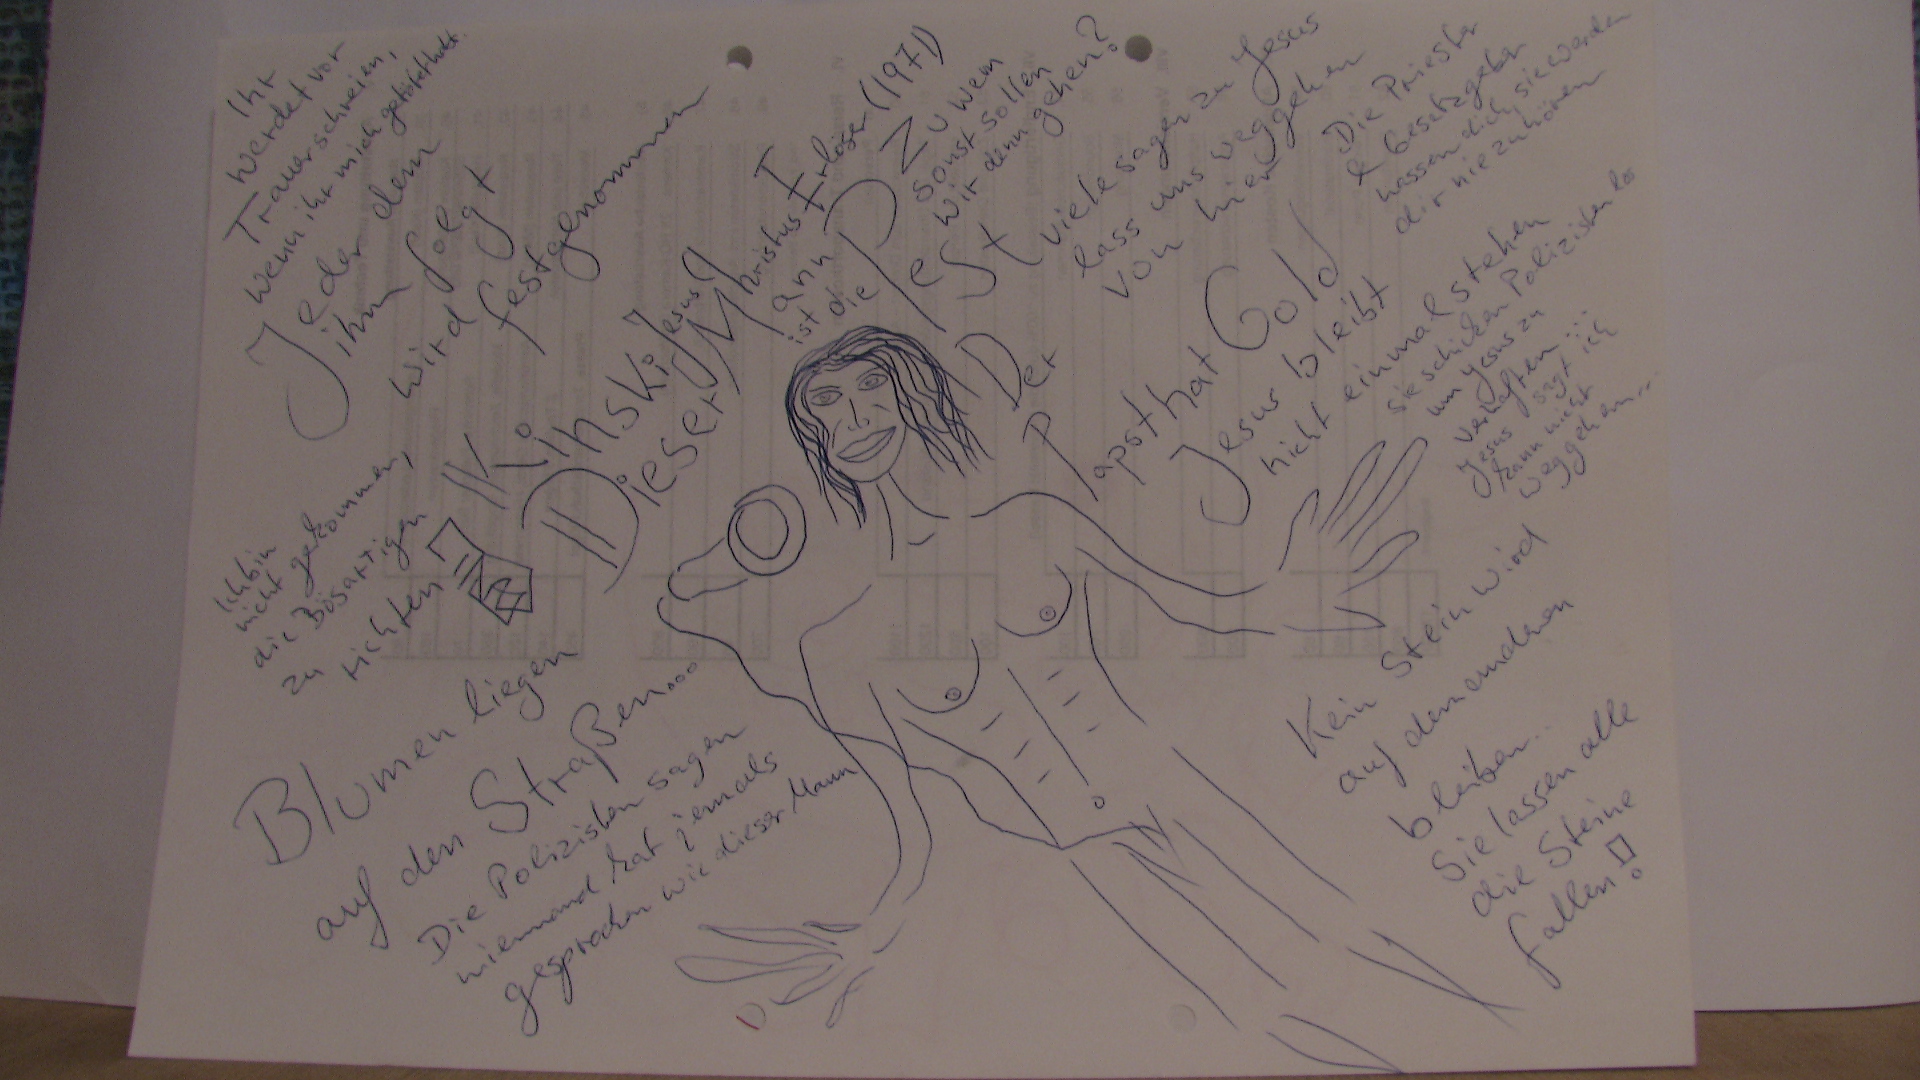 Ihr
werdet vor
Trauer schreien,
wenn ihr mich getötet habt.
Jeder dem
ihm folgt
wird festgenommen
Kinski Jesus Christus Erlöser (1971)
Dieser Mann
ist die
Pest
Zu wem
sonst sollen
wir denn gehen?
viele sagen zu Jesus
lass uns weggehen
von hier
Die Priester
& Gesetzgeber
hassen dich, sie werden
dir nie zuhören
Der
Papst hat Gold
Jesus bleibt
nicht einmal stehen
sie schicken Polizisten los
um Jesus zu
verhaften ...
Jesus sagt ich
kann nicht
weggehen...
Ich bin
nicht gekommen,
die Bösartigen
zu richten
Blumen liegen
auf den Straßen...
Die Polizisten sagen
niemand hat jemals
gesprochen wie dieser Mann
Kein Stein wird
auf dem anderen
bleiben..
Sie lassen alle
die Steine
fallen!